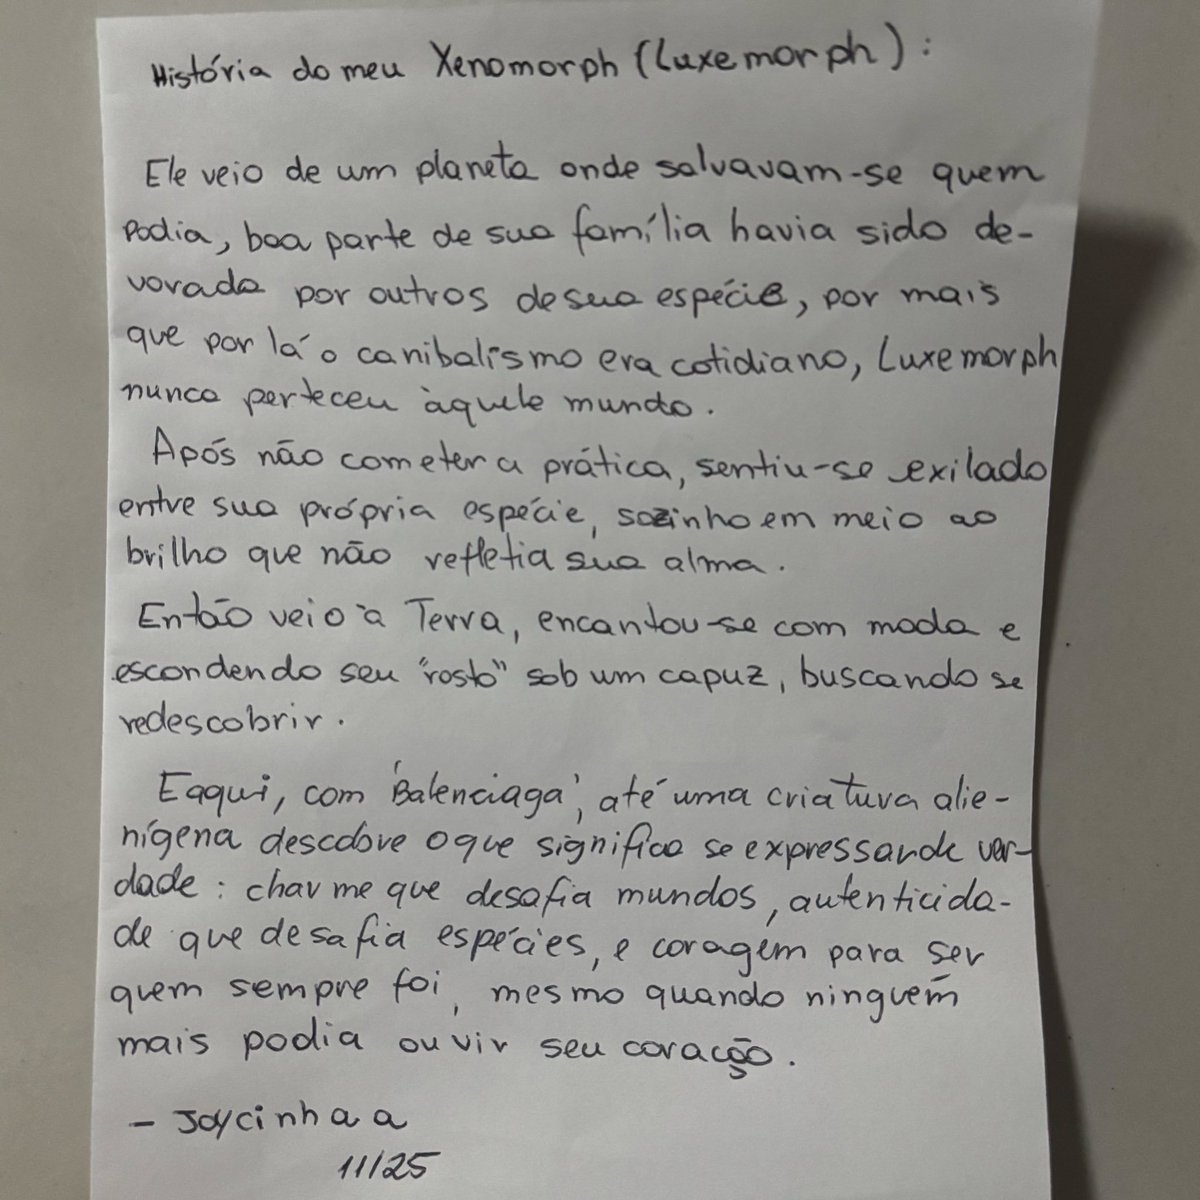 História do meu Xenomorph (Luxemorph):
Ele veio de um planeta onde salvavam-se quem
podia, boa parte de sua família havia sido de-
vorada por outros de sua espécie, por mais
que por lá o canibalismo era cotidiano, Luxemorph
nunca perteceu àquele mundo.
Após não cometer a prática, sentiu-se exilado
entre sua própria espécie, sozinho em meio ao
brilho que não refletia sua alma.
Então veio à Terra, encantou-se com moda e
escondendo seu "rosto" sob um capuz, buscando se
redescobrir.
E aqui, com 'Balenciaga', até uma criatura alie-
nígena descobre o que significa se expressar de ver-
dade: charme que desafia mundos, autenticida-
de que desafia espécies, e coragem para ser
quem sempre foi, mesmo quando ninguém
mais podia ouvir seu coração.
- Joycinhaa
11/25